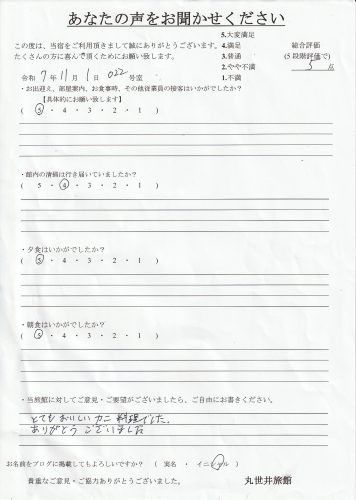 あなたの声をお聞かせください
5.大変満足
この度は、当宿をご利用頂きまして誠にありがとうございます。 4.満足 総合評価
たくさんの方に喜んで頂くためにお願い致します。 3.普通 (5段階評価で)
2.やや不満 5 点
令和 7年 11月 1日 022号室 1.不満
・お出迎え、部屋案内、お食事時、その他従業員の接客はいかがでしたか?
【具体的にお願い致します】
( 5 ・ 4 ・ 3 ・ 2 ・ 1 )
・館内の清掃は行き届いていましたか?
( 5 ・ 4 ・ 3 ・ 2 ・ 1 )
・夕食はいかがでしたか?
( 5 ・ 4 ・ 3 ・ 2 ・ 1 )
・朝食はいかがでしたか?
( 5 ・ 4 ・ 3 ・ 2 ・ 1 )
・当旅館に対してご意見・ご要望がございましたら、ご自由にお書きください。
とてもおいしいカニ料理でした。
ありがとうございました
お名前をブログに掲載してもよろしいですか? ( 実名 ・ イニシャル )
貴重なご意見・ご協力ありがとうございました。 丸世井旅館